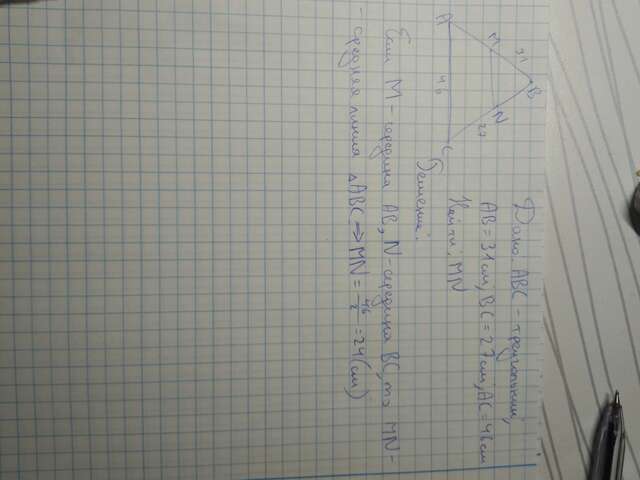 Дано: ABC - треугольник,
AB = 31 см, BC = 27 см, AC = 46 см
Найти: MN
B
31
M
N
27
A
46
C
Решение:
Если M - середина AB, N - середина BC, то MN -
- средняя линия △ABC ⇒ MN = 46/2 = 24 (см)